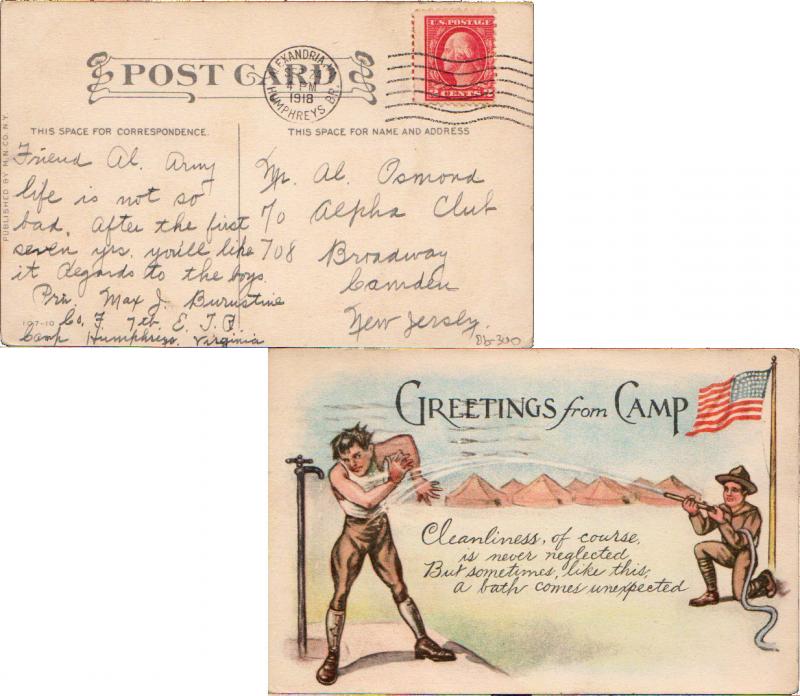 POST CARD
ALEXANDRIA, VA.
4 PM
1918
HUMPHREYS BR.
U.S. POSTAGE
2 CENTS 2
THIS SPACE FOR CORRESPONDENCE.
THIS SPACE FOR NAME AND ADDRESS
PUBLISHED BY M.N.CO. N.Y.
Friend Al. Army
life is not so
bad. After the first
seven yrs. you'll like
it Regards to the boys
Max J.
Co. F 7th. E. T.
Camp Humphreys, Virginia
107-10
Mr. Al. Osmond
℅ Alpha Club
708 Broadway
Camden
New Jersey.
GREETINGS from CAMP
Cleanliness, of course,
is never neglected
But sometimes, like this,
a bath comes unexpected